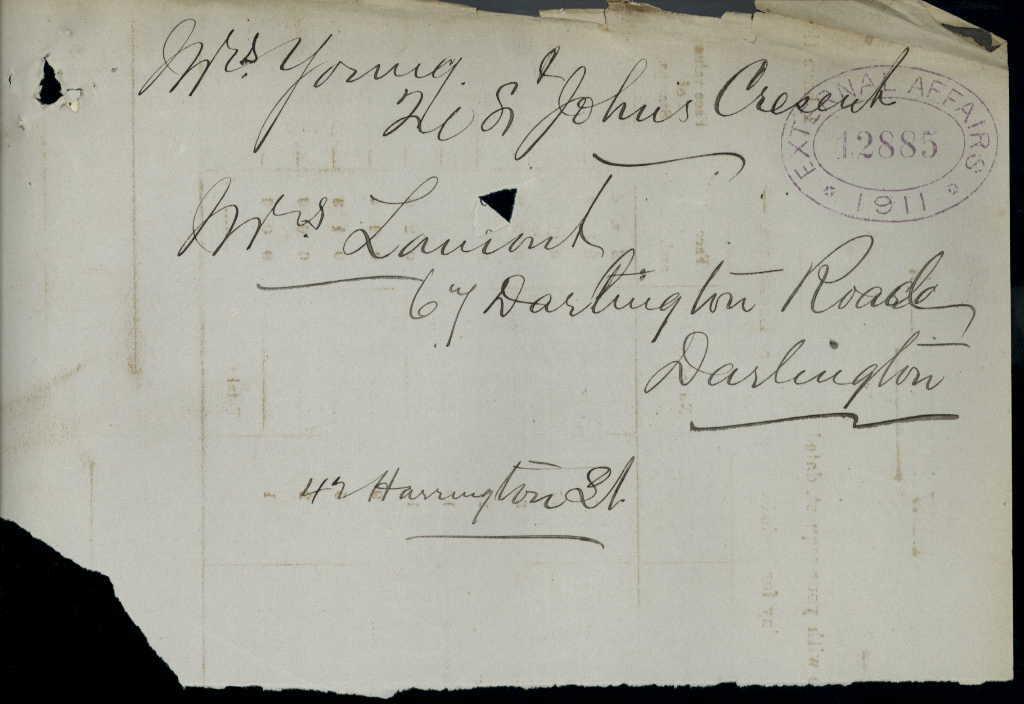 Mrs. Young.
21 St Johns Cresent
EXTERNAL AFFAIRS
12885
1911
Mrs Lamont
67 Darlington Road
Darlington
42 Harrington St